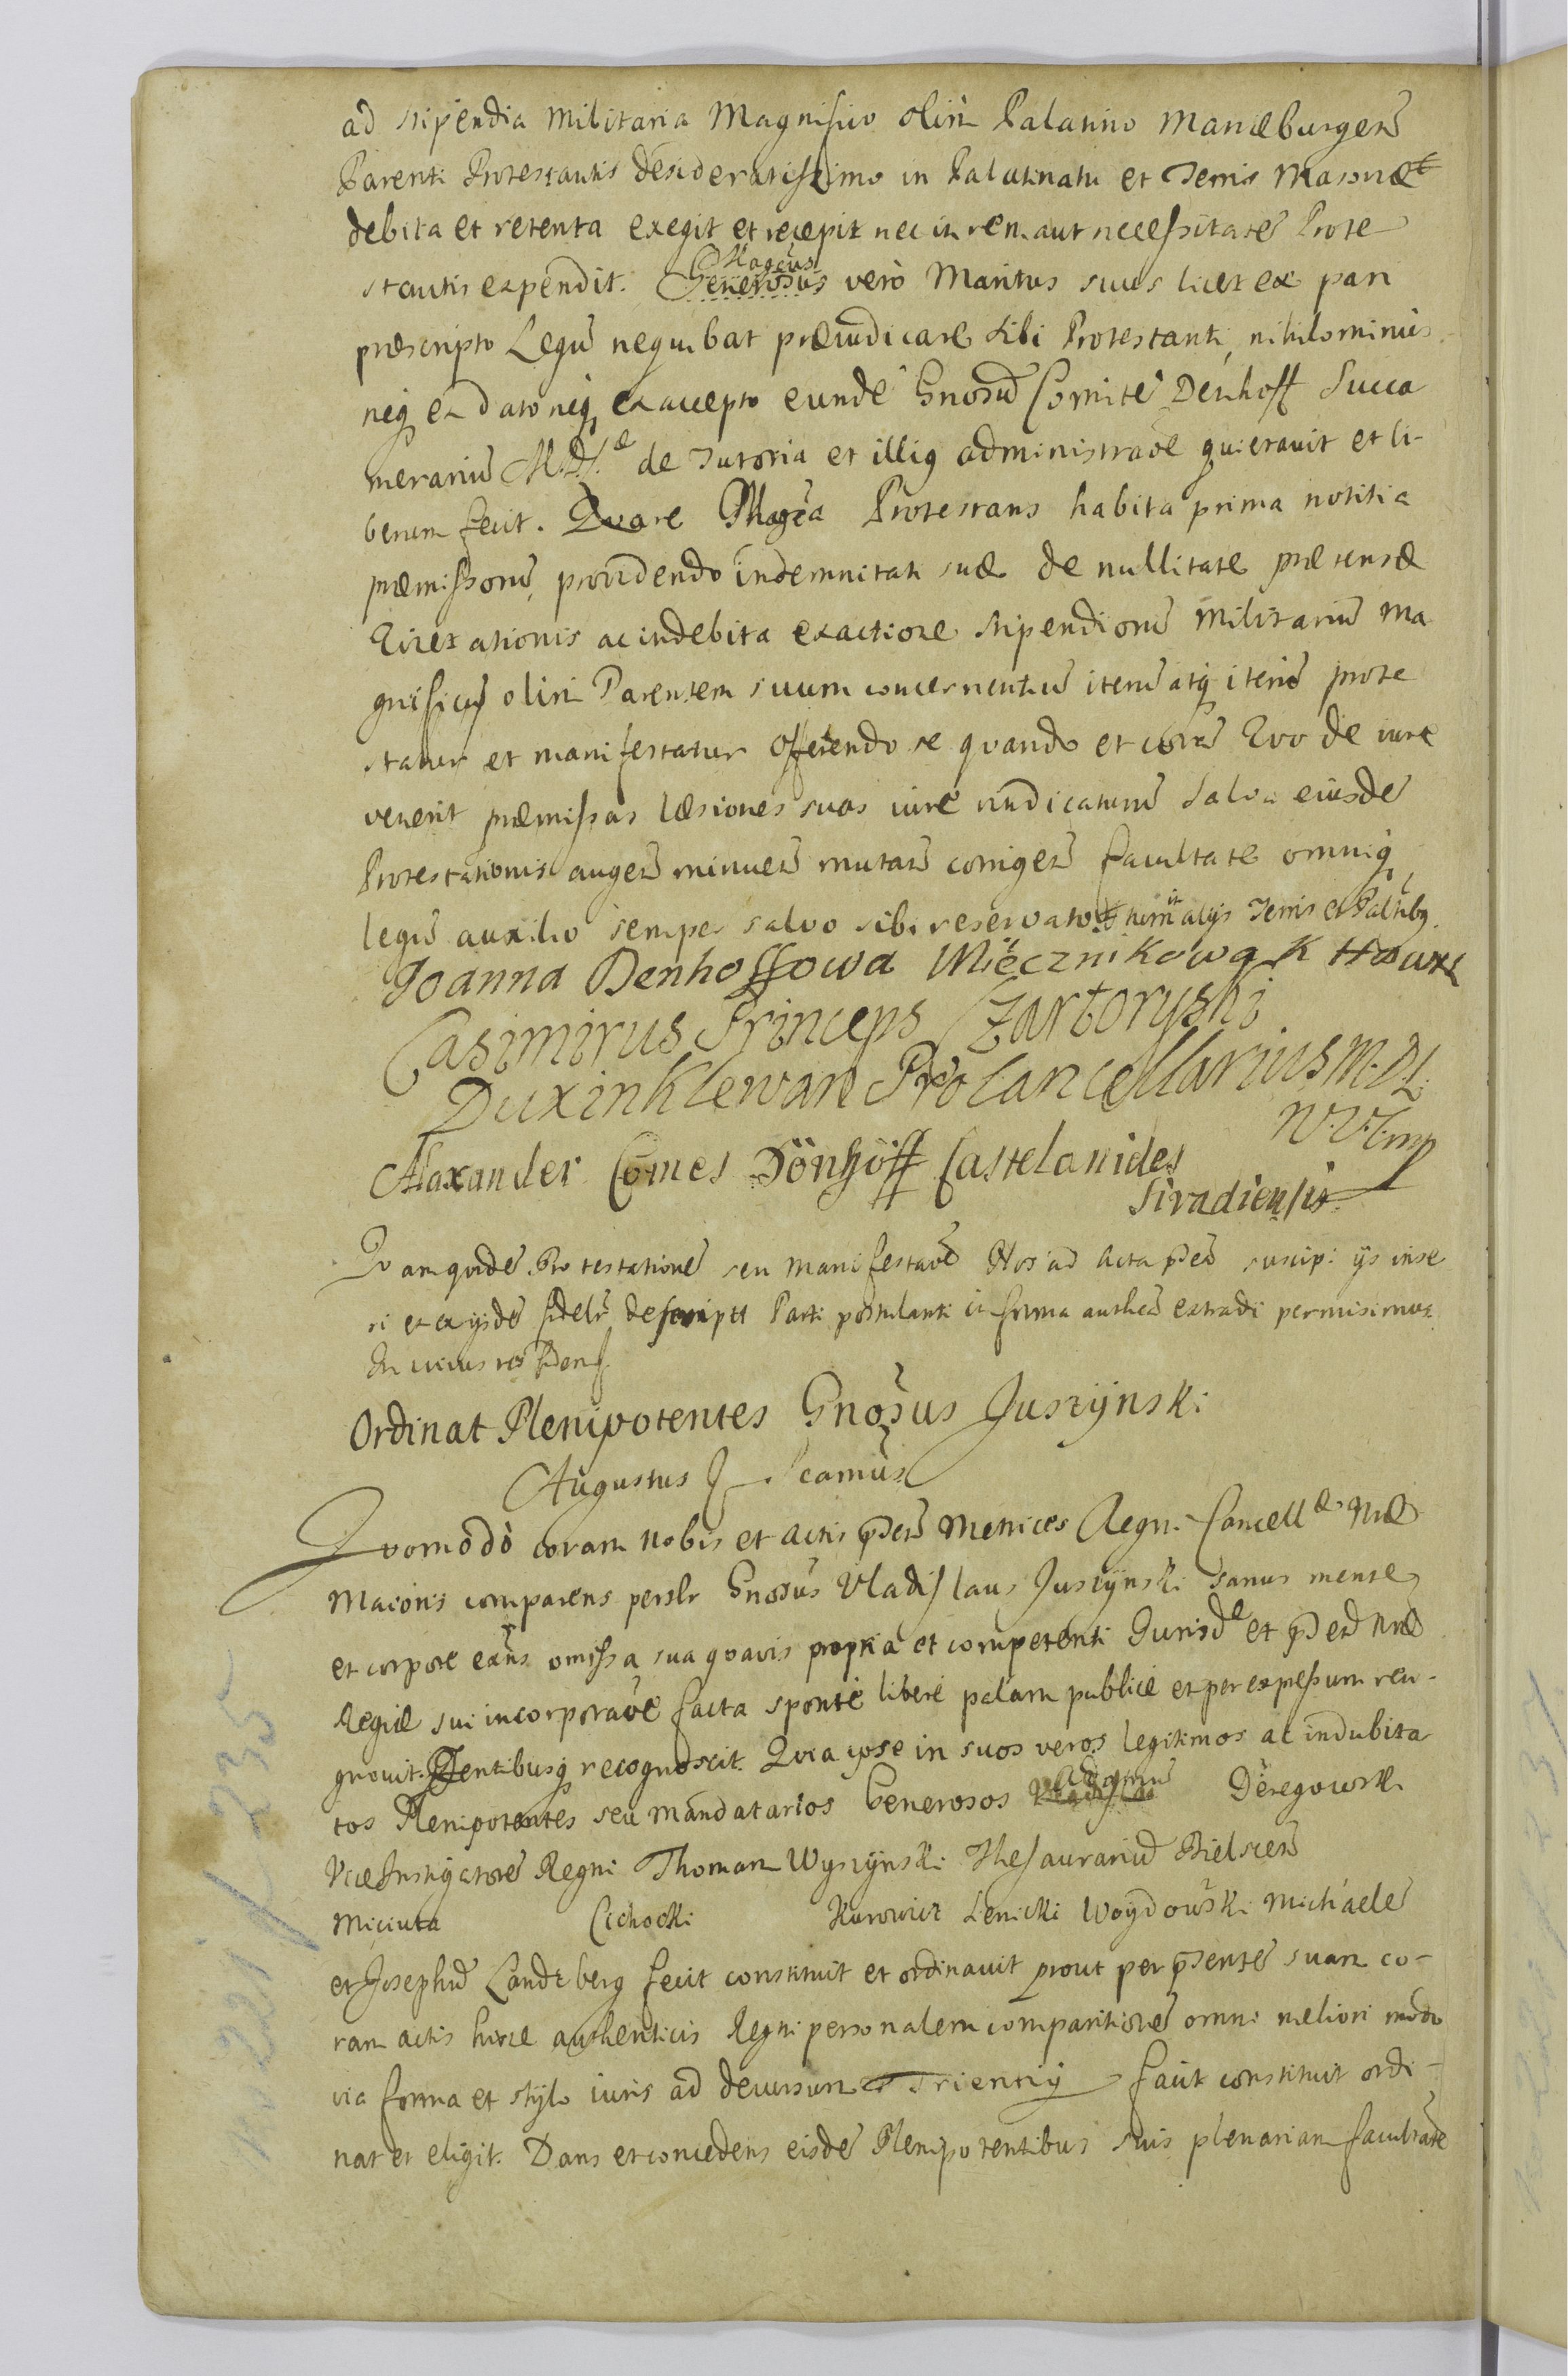 ad stipendia militaria Magnifico olim Palatino Marieburgen̄
Parenti Protestantis desideratissimo in Palatinatu et Terris Masouiæ
debita et retenta exegit et recepit nec in rem aut necessitatē Prote
stantis expendit. Generosus Mag̃cus vero Maritus suus licet ex pari
præscripto Legū nequibat præiudicare sibi Protestanti, nihilominus
neq₃ ex dato neq₃ ex accepto eundē Gnōsū Comitē Denhoff Succa
merariū M.D.L.æ de Tutoria et illiq₃ administraõe quietauit et li-
berum fecit. Quare Mag̃ca Protestans habita prima notitia
præmissorū, prouidendo indemnitati suæ de nullitate prætensæ
Quietationis ac indebita exactione stipendiorū militariū Ma
gnificū olim Parentem suum concernentiū iterū atq₃ iterū prote
statur et manifestatur offerendo se quando et corā quo de iure
venerit præmissas læsiones suas iure uindicaturū Salua eiusdē
Protestationis augen̄ minuen̄ mutan̄ corrigen̄ facultate omniq₃
legū auxilio semper saluo sibi reseruato et tum in alijs Terris et Paltũbq₃
Joanna Denhoffowa Miecznikowa K
Casimirus Princeps Czartoryski
Dux in Klewan ProCancellarius M.D.L.
Alaxander Comes Dönhöff Castelanides
Siradiensis
Quam quidē Protestationē seu Manifestaõē Nos ad Acta p̄ntia suscipi ijs inse
ri et ex ijsdē fidelr̃ descripta Parti postulanti in forma authēn extradi permisimus
In cuius rei
Ordinat Plenipotentes Gnōsus Juszÿnski
Augustus
Quomodo coram Nobis et Actis p̄ntibus Metrices Regni Cancellæ Nræ
Maioris comparens personlr Gnōsus Vladislaus Juszÿnski sanus mente
et corpore exñs omissa sua quauis propria et competenti Jurisde et p̄nti Nræ
Regiæ sui incorporaõe facta sponte libere palam publice et per expressum reco-
gnouit. p̄ntibusq₃ recognoscit. Quia ipse in suos veros legitimos ac indubita
tos Plenipotentes seu Mandatarios Generosos Deregowski
ViceInstigatorē Regni Thomam Wyszÿnski Thesaurariū Bielscen̄
Miciuta Cichocki Kurowicz Lenicki Woÿdowski Michaelē
et Josephū Landtberg fecit constituit et ordinauit prout per p̄ntē suam co-
ram actis hisce authenticis Regni personalem comparitionē omni meliori modo
via forma et stÿlo iuris ad decursum Triennÿ facit constituit ordi-
nat et eligit. Dans et concedens eisdē Plenipotentibus suis plenariam facultatē